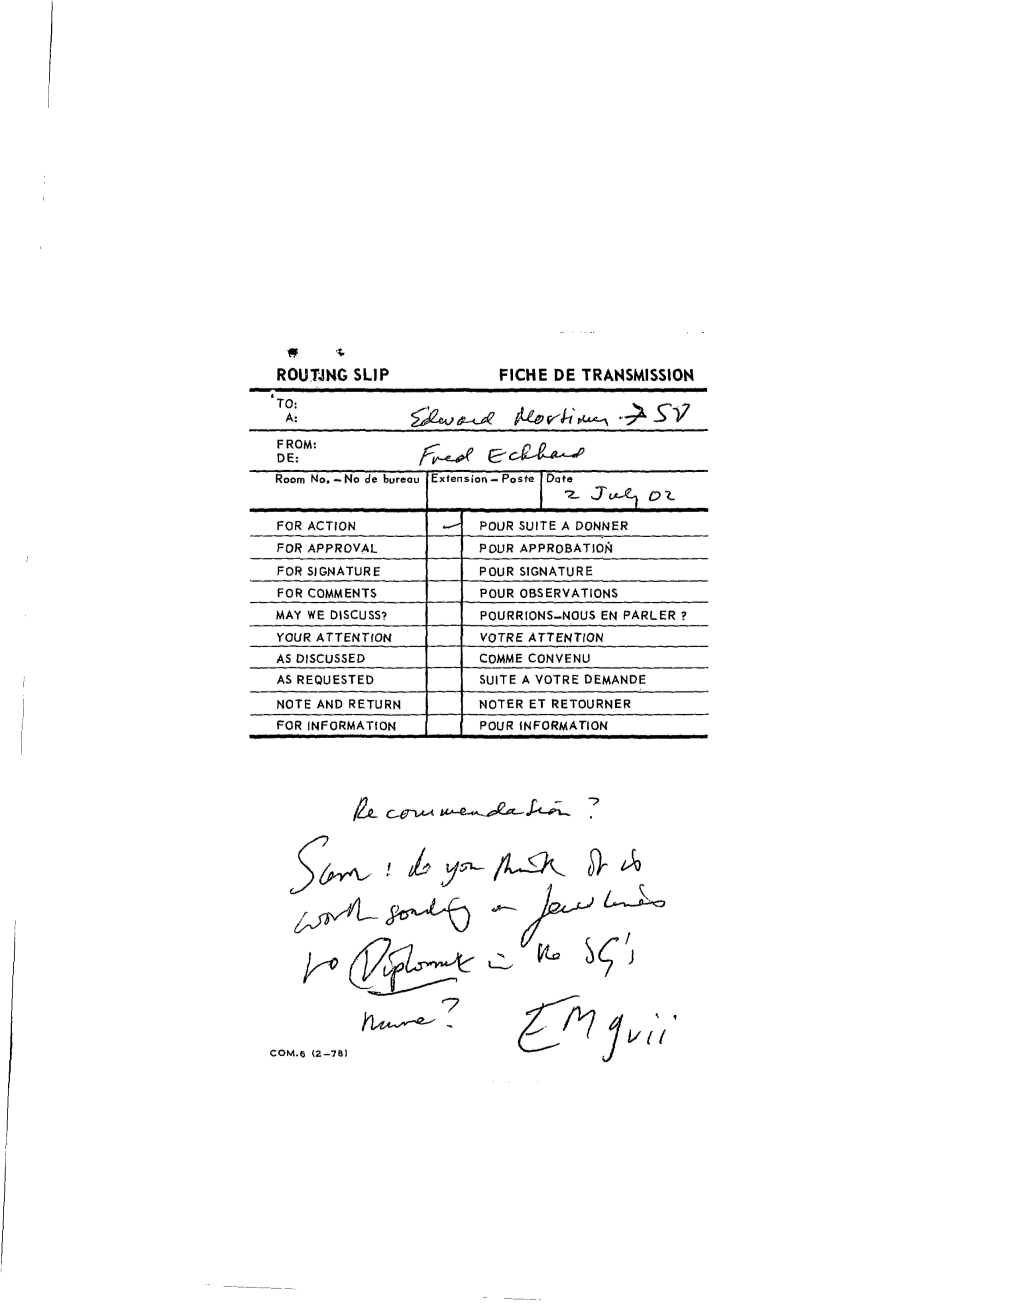 ROUTING SLIP FICHE DE TRANSMISSION
TO:
A: Edward Mortimer → SV
FROM:
DE: Fred Eckhard
Room No. – No de bureau Extension – Poste Date
2 July 02
FOR ACTION ✓ POUR SUITE A DONNER
FOR APPROVAL POUR APPROBATION
FOR SIGNATURE POUR SIGNATURE
FOR COMMENTS POUR OBSERVATIONS
MAY WE DISCUSS? POURRIONS–NOUS EN PARLER ?
YOUR ATTENTION VOTRE ATTENTION
AS DISCUSSED COMME CONVENU
AS REQUESTED SUITE A VOTRE DEMANDE
NOTE AND RETURN NOTER ET RETOURNER
FOR INFORMATION POUR INFORMATION
Recommendation ?
Sam: do you think it is
worth sending a few lines
to Diplomat in the SG's
name?
EM
COM.6 (2–78)